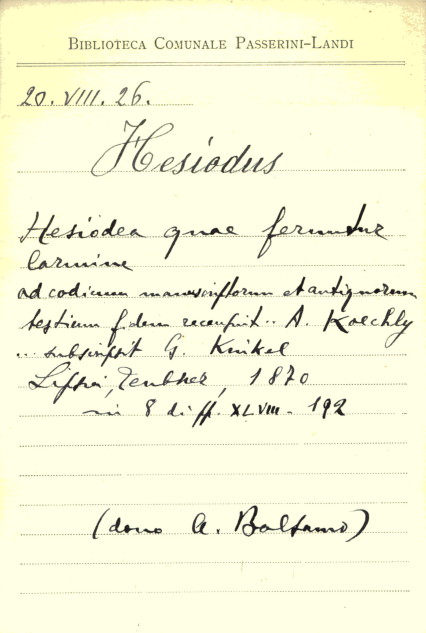 BIBLIOTECA COMUNALE PASSERINI-LANDI
20. VIII. 26.
Hesiodus
Hesiodea quae feruntur
Carmina
ad codicum manuscriptorum et antiquorum
testium fidem recensuit .. A. Koechly
... subscripsit G. Kinkel
Lipsia, Teubner, 1870
in 8 di ff. XLVIII - 192
(dono A. Balsamo)